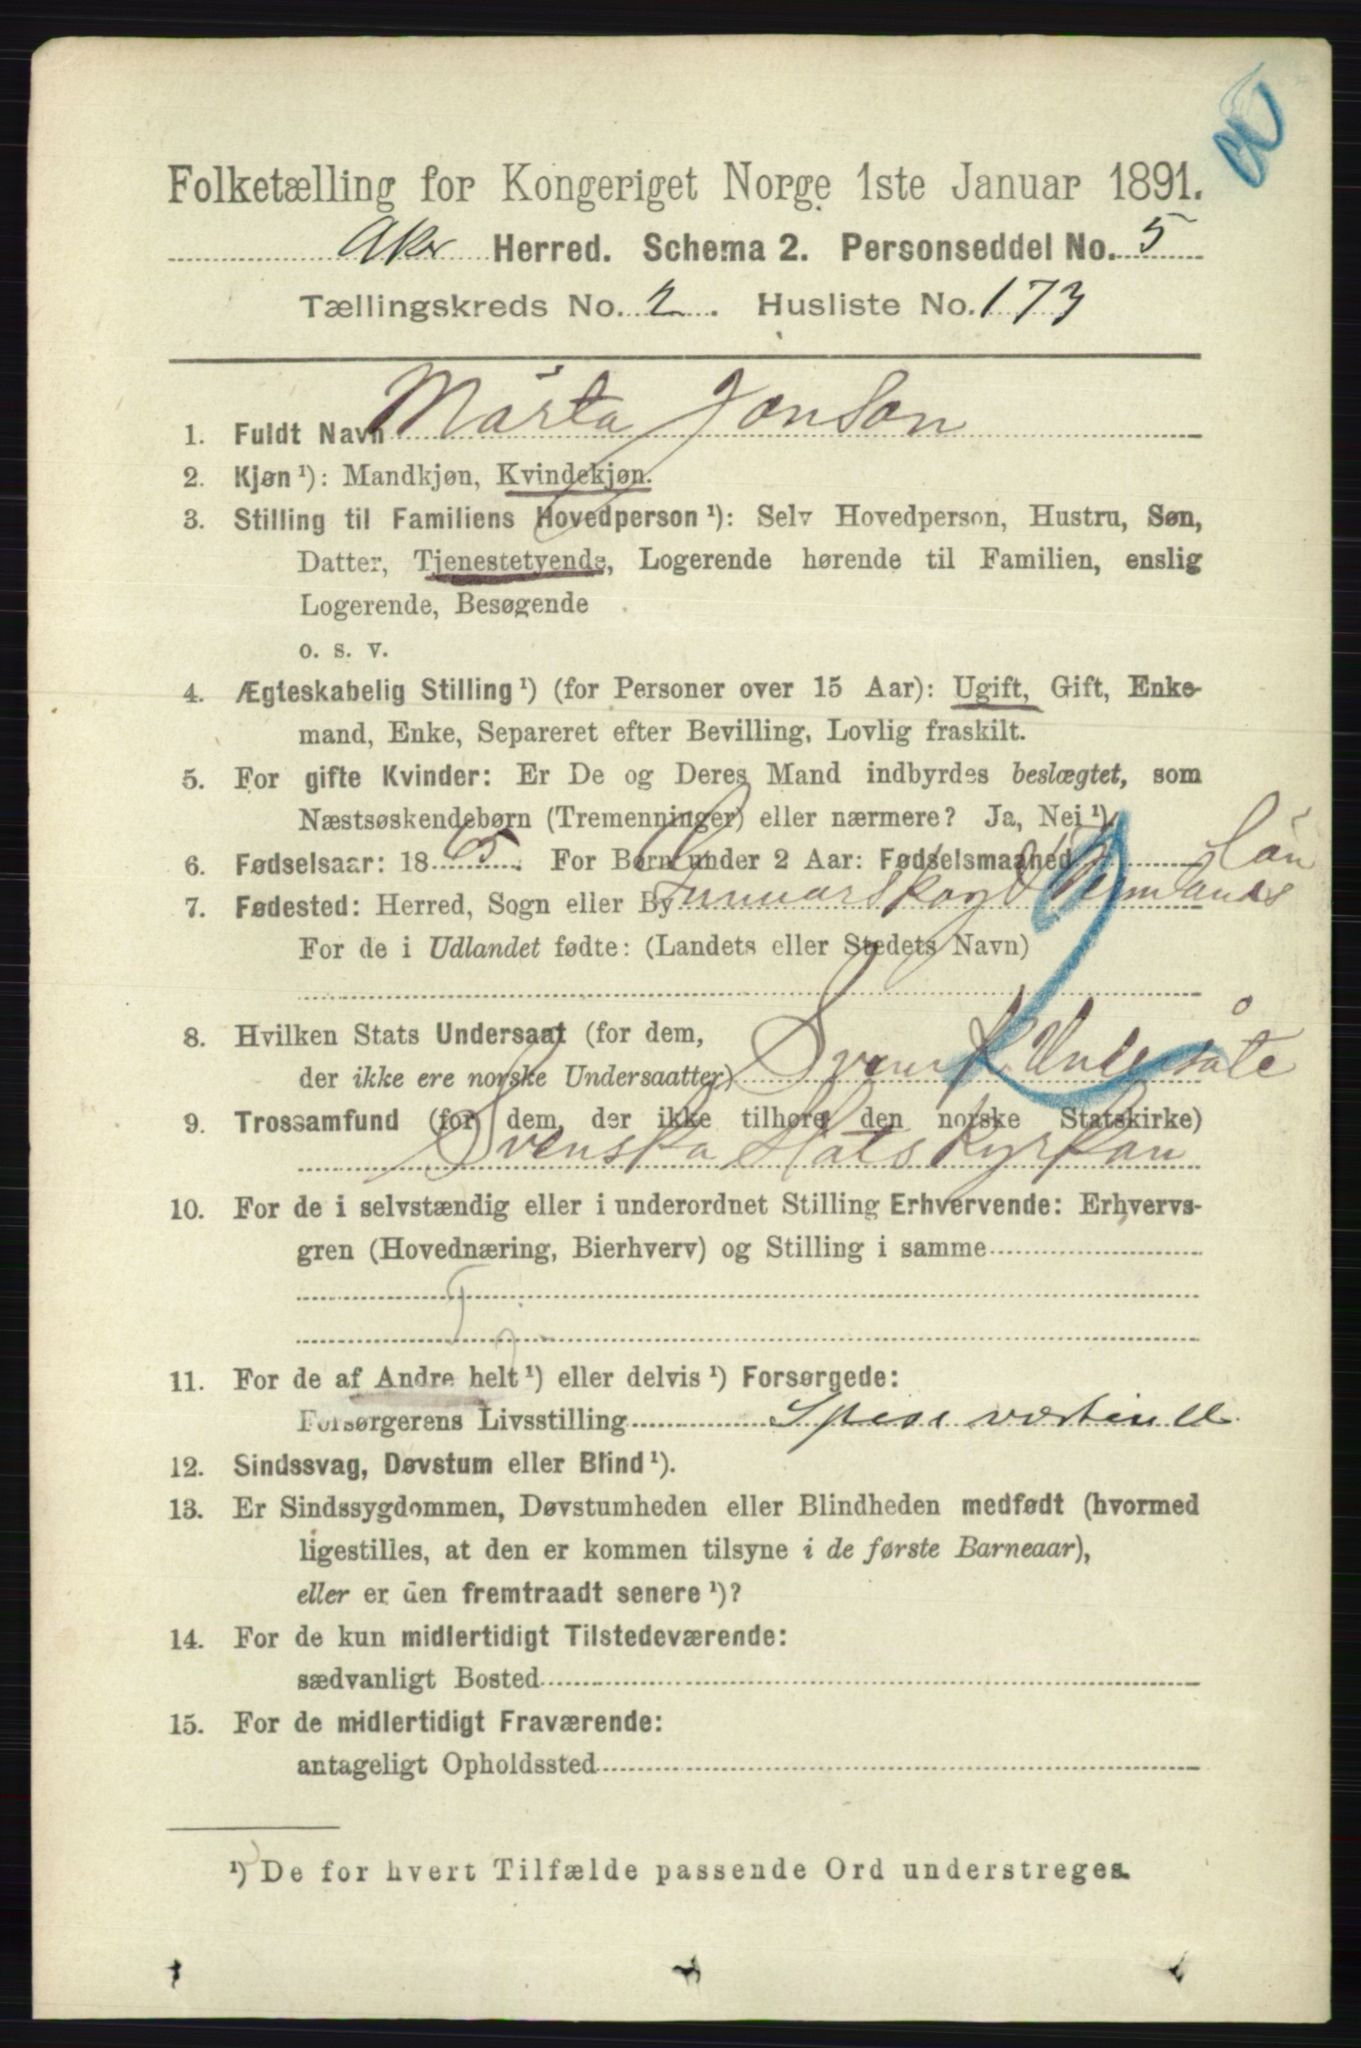 Folketælling for Kongeriget Norge 1ste Januar 1891.
Aker Herred. Schema 2. Personseddel No. 5
Tællingskreds No. 2. Husliste No. 173
1. Fuldt Navn Märta Jonson
2. Kjøn¹): Mandkjøn, Kvindekjøn.
3. Stilling til Familiens Hovedperson¹): Selv Hovedperson, Hustru, Søn,
Datter, Tjenestetyende, Logerende hørende til Familien, enslig
Logerende, Besøgende
o. s. v.
4. Ægteskabelig Stilling¹) (for Personer over 15 Aar): Ugift, Gift, Enke-
mand, Enke, Separeret efter Bevilling, Lovlig fraskilt.
5. For gifte Kvinder: Er De og Deres Mand indbyrdes beslægtet, som
Næstsøskendebørn (Tremenninger) eller nærmere? Ja, Nei¹).
6. Fødselsaar: 1865. For Børn under 2 Aar: Fødselsmaaned Län
7. Fødested: Herred, Sogn eller By Gunnarskog Vermlands
For de i Udlandet fødte: (Landets eller Stedets Navn)
8. Hvilken Stats Undersaat (for dem,
der ikke ere norske Undersaatter) Svensk Undersåte
9. Trossamfund (for dem, der ikke tilhøre den norske Statskirke)
Svenska Statskyrkan
10. For de i selvstændig eller i underordnet Stilling Erhvervende: Erhvervs-
gren (Hovednæring, Bierhverv) og Stilling i samme
11. For de af Andre helt¹) eller delvis¹) Forsørgede:
Forsørgerens Livsstilling Spiseværtinde
12. Sindssvag, Døvstum eller Blind¹).
13. Er Sindssygdommen, Døvstumheden eller Blindheden medfødt (hvormed
ligestilles, at den er kommen tilsyne i de første Barneaar),
eller er den fremtraadt senere¹)?
14. For de kun midlertidigt Tilstedeværende:
sædvanligt Bosted
15. For de midlertidigt Fraværende:
antageligt Opholdssted
¹) De for hvert Tilfælde passende Ord understreges.